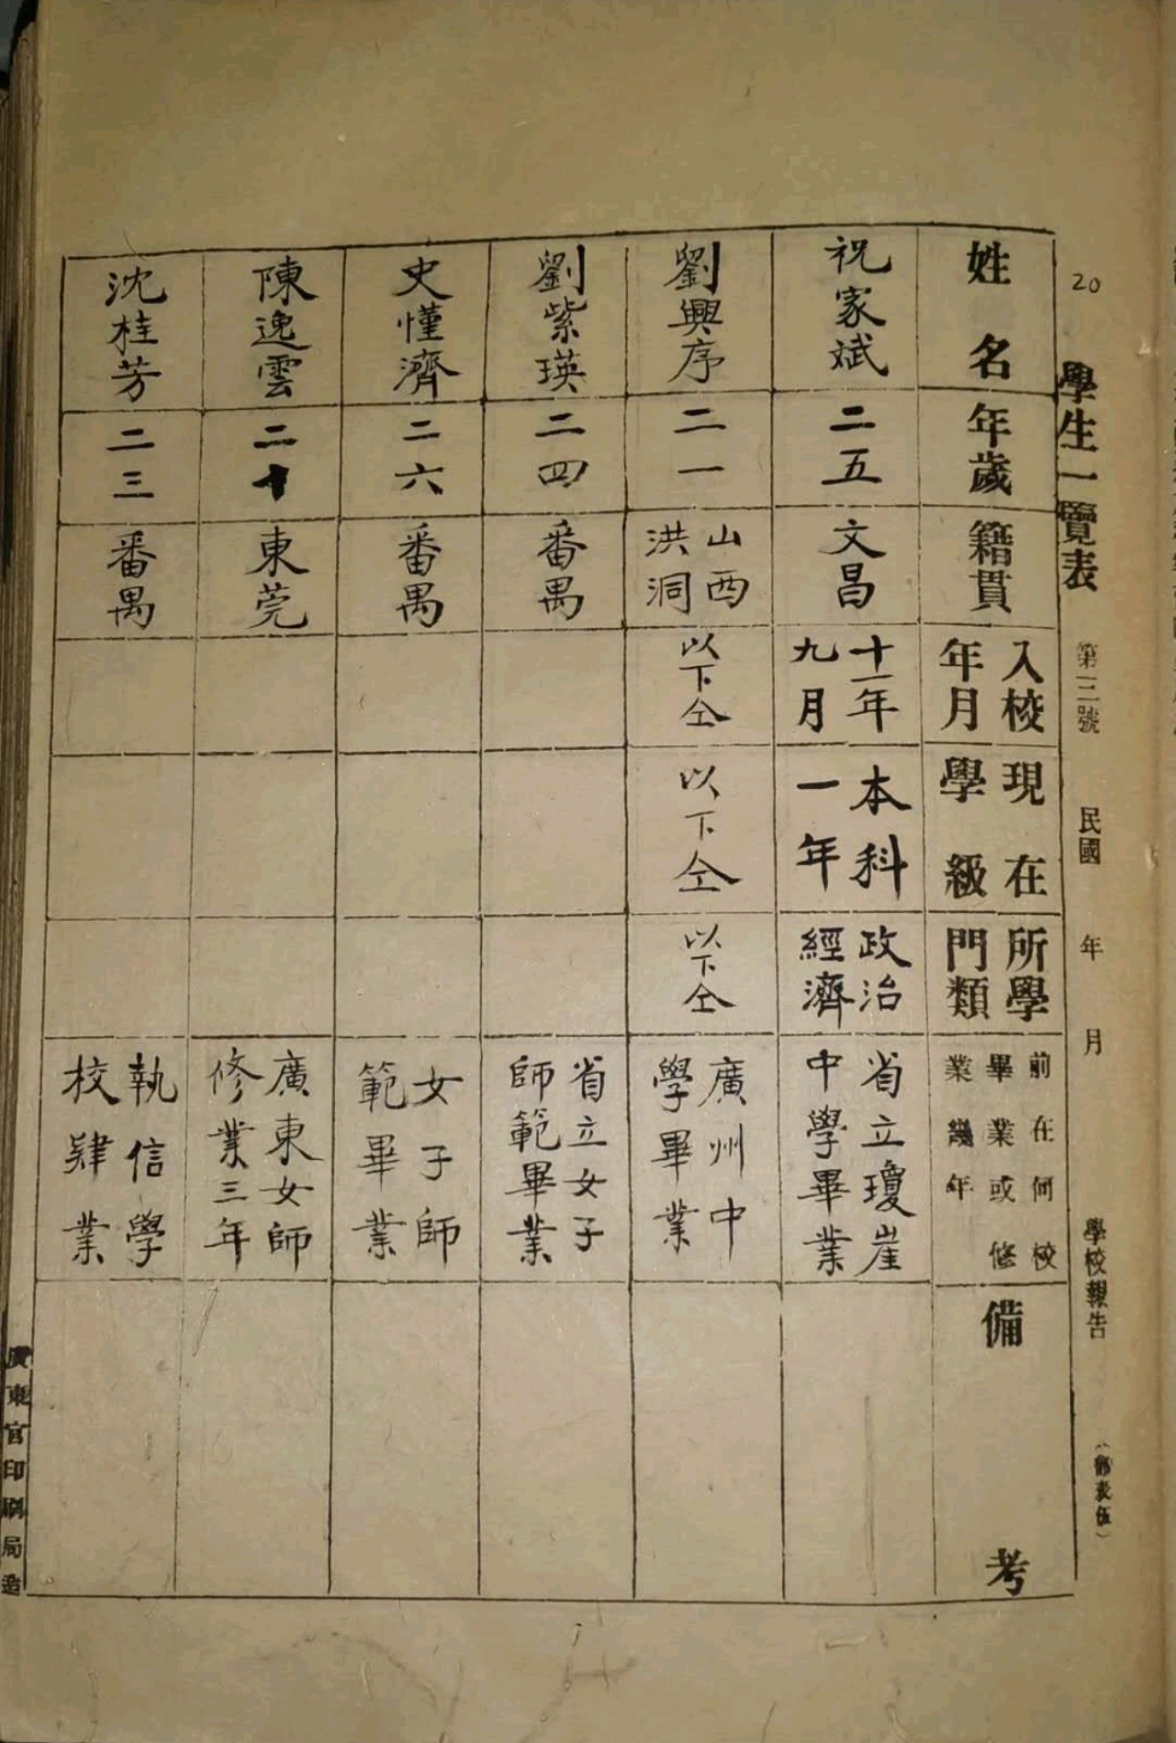 20
學生一覽表 第三號 民國 年 月 學校報告
姓名
年歲
籍貫
入校
年月
現在
學級
所學
門類
前在何校
畢業或修
業幾年
備考
祝家斌
二五
文昌
十一年
九月
本科
一年
政治
經濟
省立瓊崖
中學畢業
劉興序
二一
山西
洪洞
以下仝
以下仝
以下仝
廣州中
學畢業
劉紫瑛
二四
番禺
省立女子
師範畢業
史慬濟
二六
番禺
女子師
範畢業
陳逸雲
二十
東莞
廣東女師
修業三年
沈桂芳
二三
番禺
執信學
校肄業
廣東官印刷局造